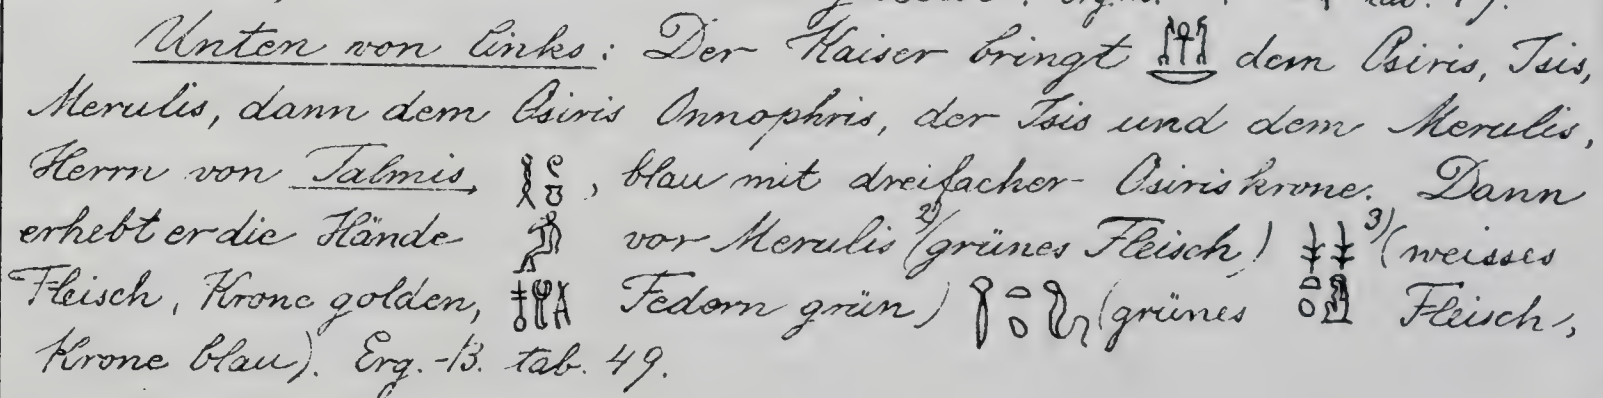 Unten von links: Der Kaiser bringt dem Osiris, Isis,
Merulis, dann dem Osiris Onnophris, der Isis und dem Merulis,
Herrn von Talmis, , blau mit dreifacher Osiriskrone. Dann
erhebt er die Hände vor Merulis 2) (grünes Fleisch) 3) (weisses
Fleisch, Krone golden, Federn grün) (grünes Fleisch,
Krone blau). Erg.-B. tab. 49.